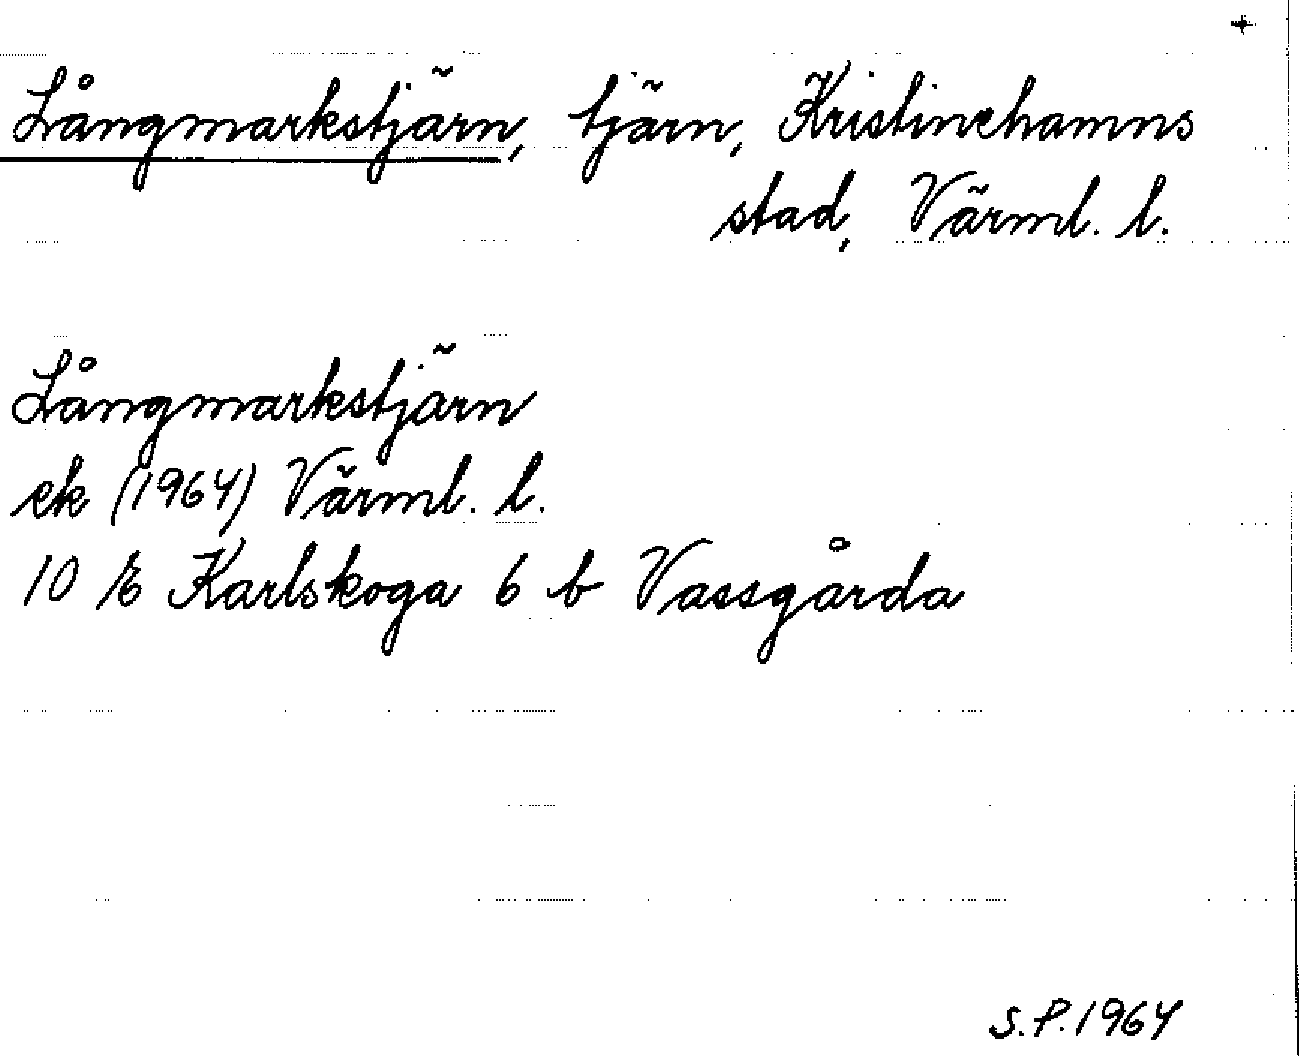 Långmarkstjärn, tjärn, Kristinehamns
stad, Värml. l.
Långmarkstjärn
ek (1964) Värml. l.
10 E Karlskoga 6 b Vassgårda
S.P. 1964